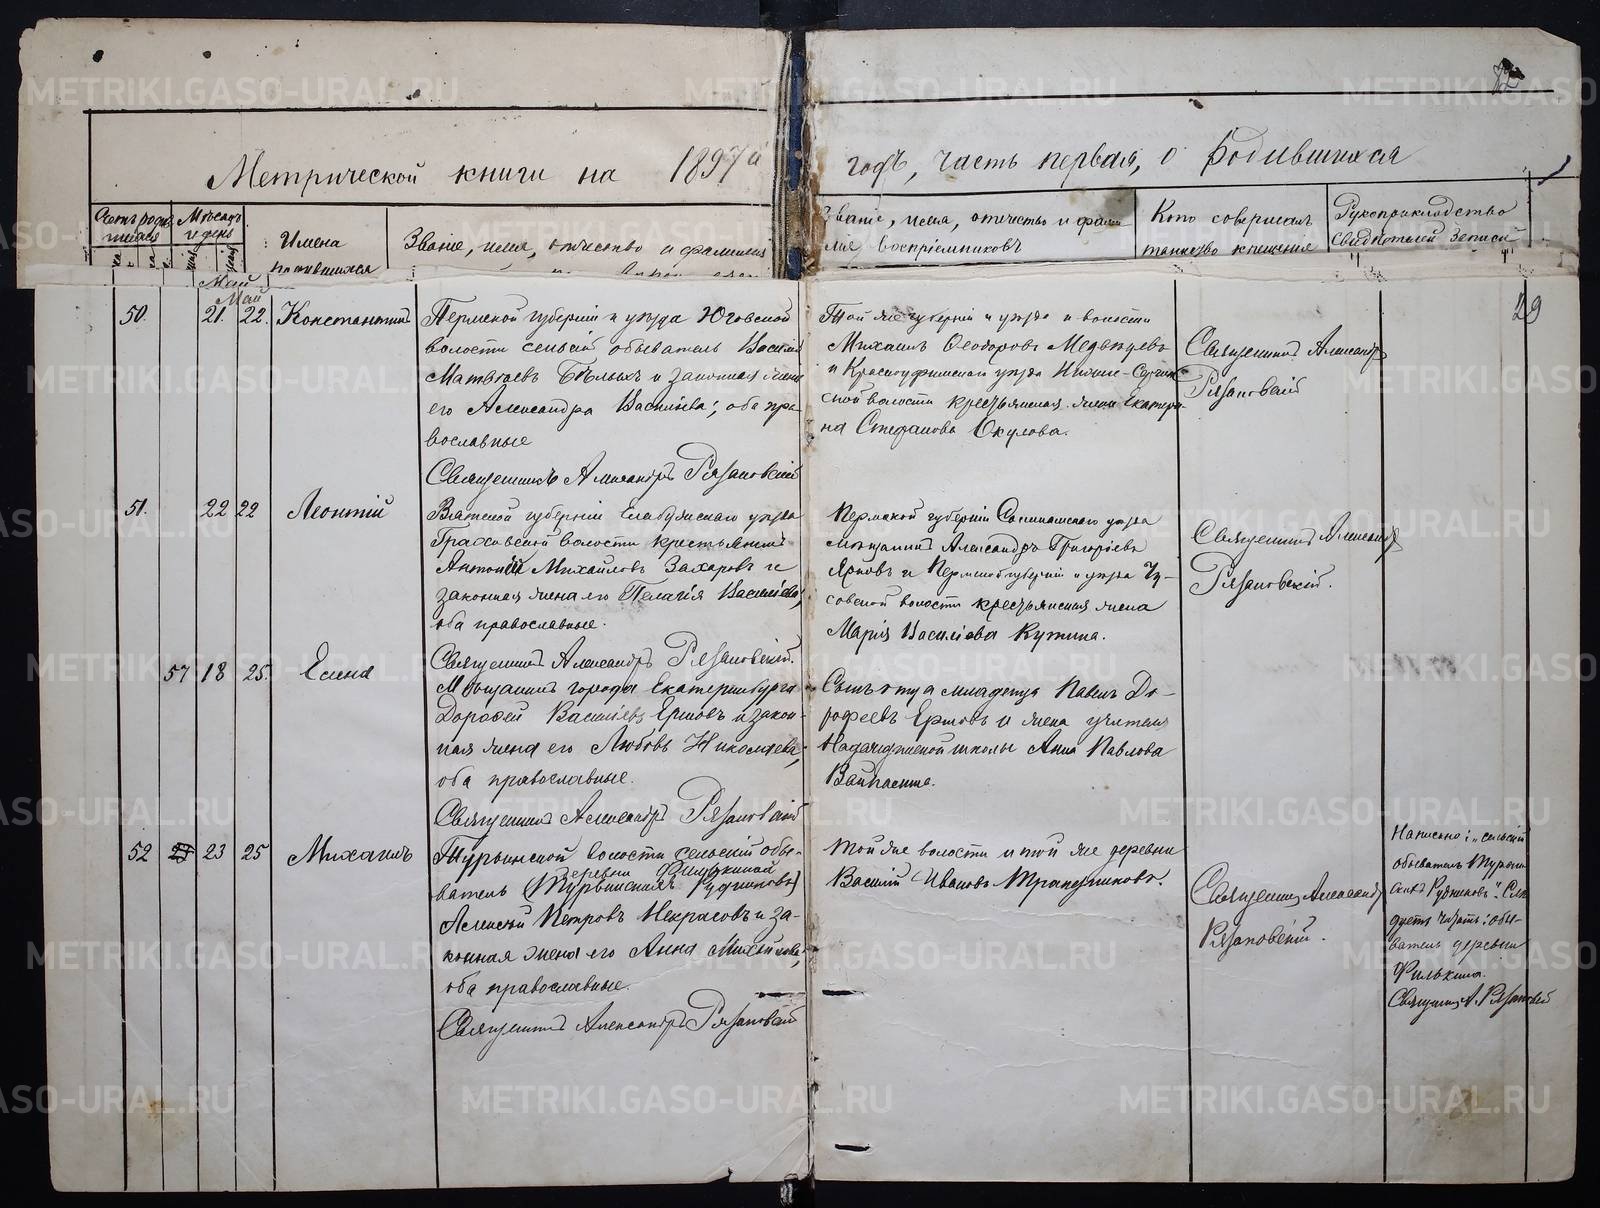 Метрической книги на 1897й
годъ, часть первая, о родившихся
Мѣсяцъ и день
Имена
родившихся
Званіе, имя, отчество и фамилія
Званіе, имя, отчество и фами-
лія воспріемниковъ
Кто совершалъ
таинство крещенія
Рукоприкладство
свидѣтелей записи
Май
Май
29
50. 21. 22. Константинъ
Пермской губерніи и уѣзда Юговской
волости сельскій обыватель Василій
Матвѣевъ Бѣлыхъ и законная жена
его Александра Васильева; оба пра-
вославные
Священникъ Александръ Рязановскій
Той же губерніи и уѣзда и волости
Михаилъ Ѳеодоровъ Медвѣдевъ
и Красноуфимскаго уѣзда Нижне-
ской волости крестьянская жена Екатери-
на Стефанова Окулова.
Священникъ Александръ
Рязановскій
51. 22 22 Леонтій
Вятской губерніи Елабужскаго уѣзда
Граховской волости крестьянинъ
Антоній Михайловъ Захаровъ и
законная жена его Пелагія Васильева,
оба православные.
Священникъ Александръ Рязановскій.
Пермской губерніи уѣзда
Александръ Григорьевъ
и Пермской губерніи и уѣзда Чу-
совской волости крестьянская жена
Марія Васильева Кутина.
Священникъ Александръ
Рязановскій.
57 18 25. Елена
Мѣщанинъ города Екатеринбурга
Дорофей Васильевъ Ершовъ и закон-
ная жена его Любовь Николаева,
оба православные.
Священникъ Александръ Рязановскій
Сынъ отца младенца Павелъ До-
рофеевъ Ершовъ и жена учителя
школы Анна Павлова
52 23 25 Михаилъ
Турьинской волости сельскій обы-
деревни Филькиной
ватель (Турьинскихъ Рудниковъ)
Алексѣй Петровъ Некрасовъ и за-
конная жена его Анна Михайлова,
оба православные.
Священникъ Александръ Рязановскій
Той же волости и той же деревни
Василій Ивановъ Трапезниковъ.
Священникъ Александръ
Рязановскій.
Написано: „сельскій
обыватель Турьин-
скихъ Рудниковъ". Слѣ-
дуетъ читать: обы-
ватель деревни
Филькина.
Священ. А. Рязановскій
METRIKI.GASO-URAL.RU